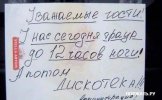 Уважаемые гости!
У нас сегодня траур
до 12 часов ночи!
А потом
Дискотека!!!
Администрация